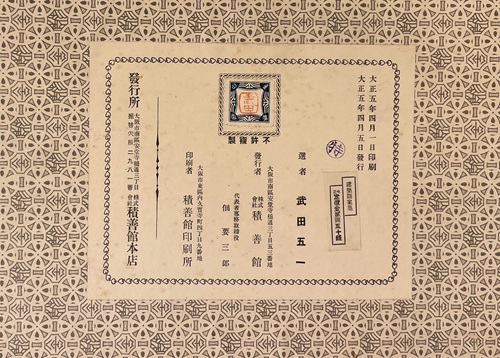 大正五年四月一日印刷
大正五年四月五日發行
選者 武田五一
不許複製
大阪市南區安堂寺橋通三丁目五三番地
發行者 株式會社 積善館
代表者專務取締役
佃要三郎
大阪市東區內久寶寺町四丁目九番地
印刷者 積善館印刷所
大阪市南區安堂寺橋通三丁目
發行所 株式會社 積善館本店